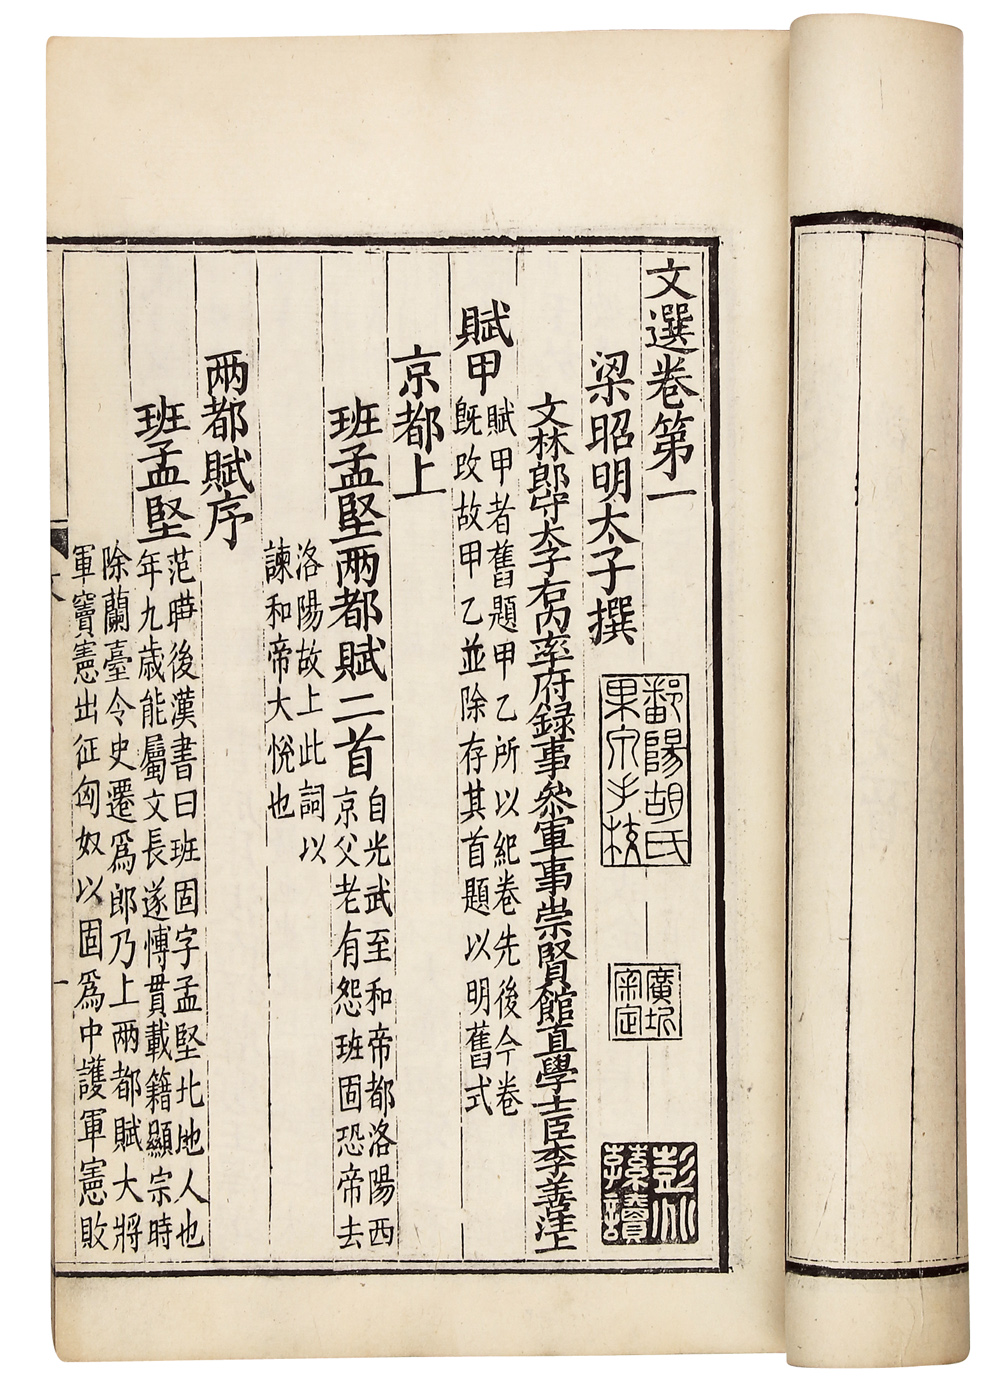 文選卷第一
梁昭明太子撰
鄱陽胡氏
果泉手校
文林郎守太子右內率府録事參軍事崇賢館直學士臣李善注上
賦甲
賦甲者舊題甲乙所以紀卷先後今卷
旣改故甲乙並除存其首題以明舊式
京都上
班孟堅兩都賦二首
自光武至和帝都洛陽西
京父老有怨班固恐帝去
洛陽故上此詞以
諫和帝大悅也
兩都賦序
班孟堅
范曄後漢書曰班固字孟堅北地人也
年九歲能屬文長遂博貫載籍顯宗時
除蘭臺令史遷爲郎乃上兩都賦大將
軍竇憲出征匈奴以固爲中護軍憲敗
一